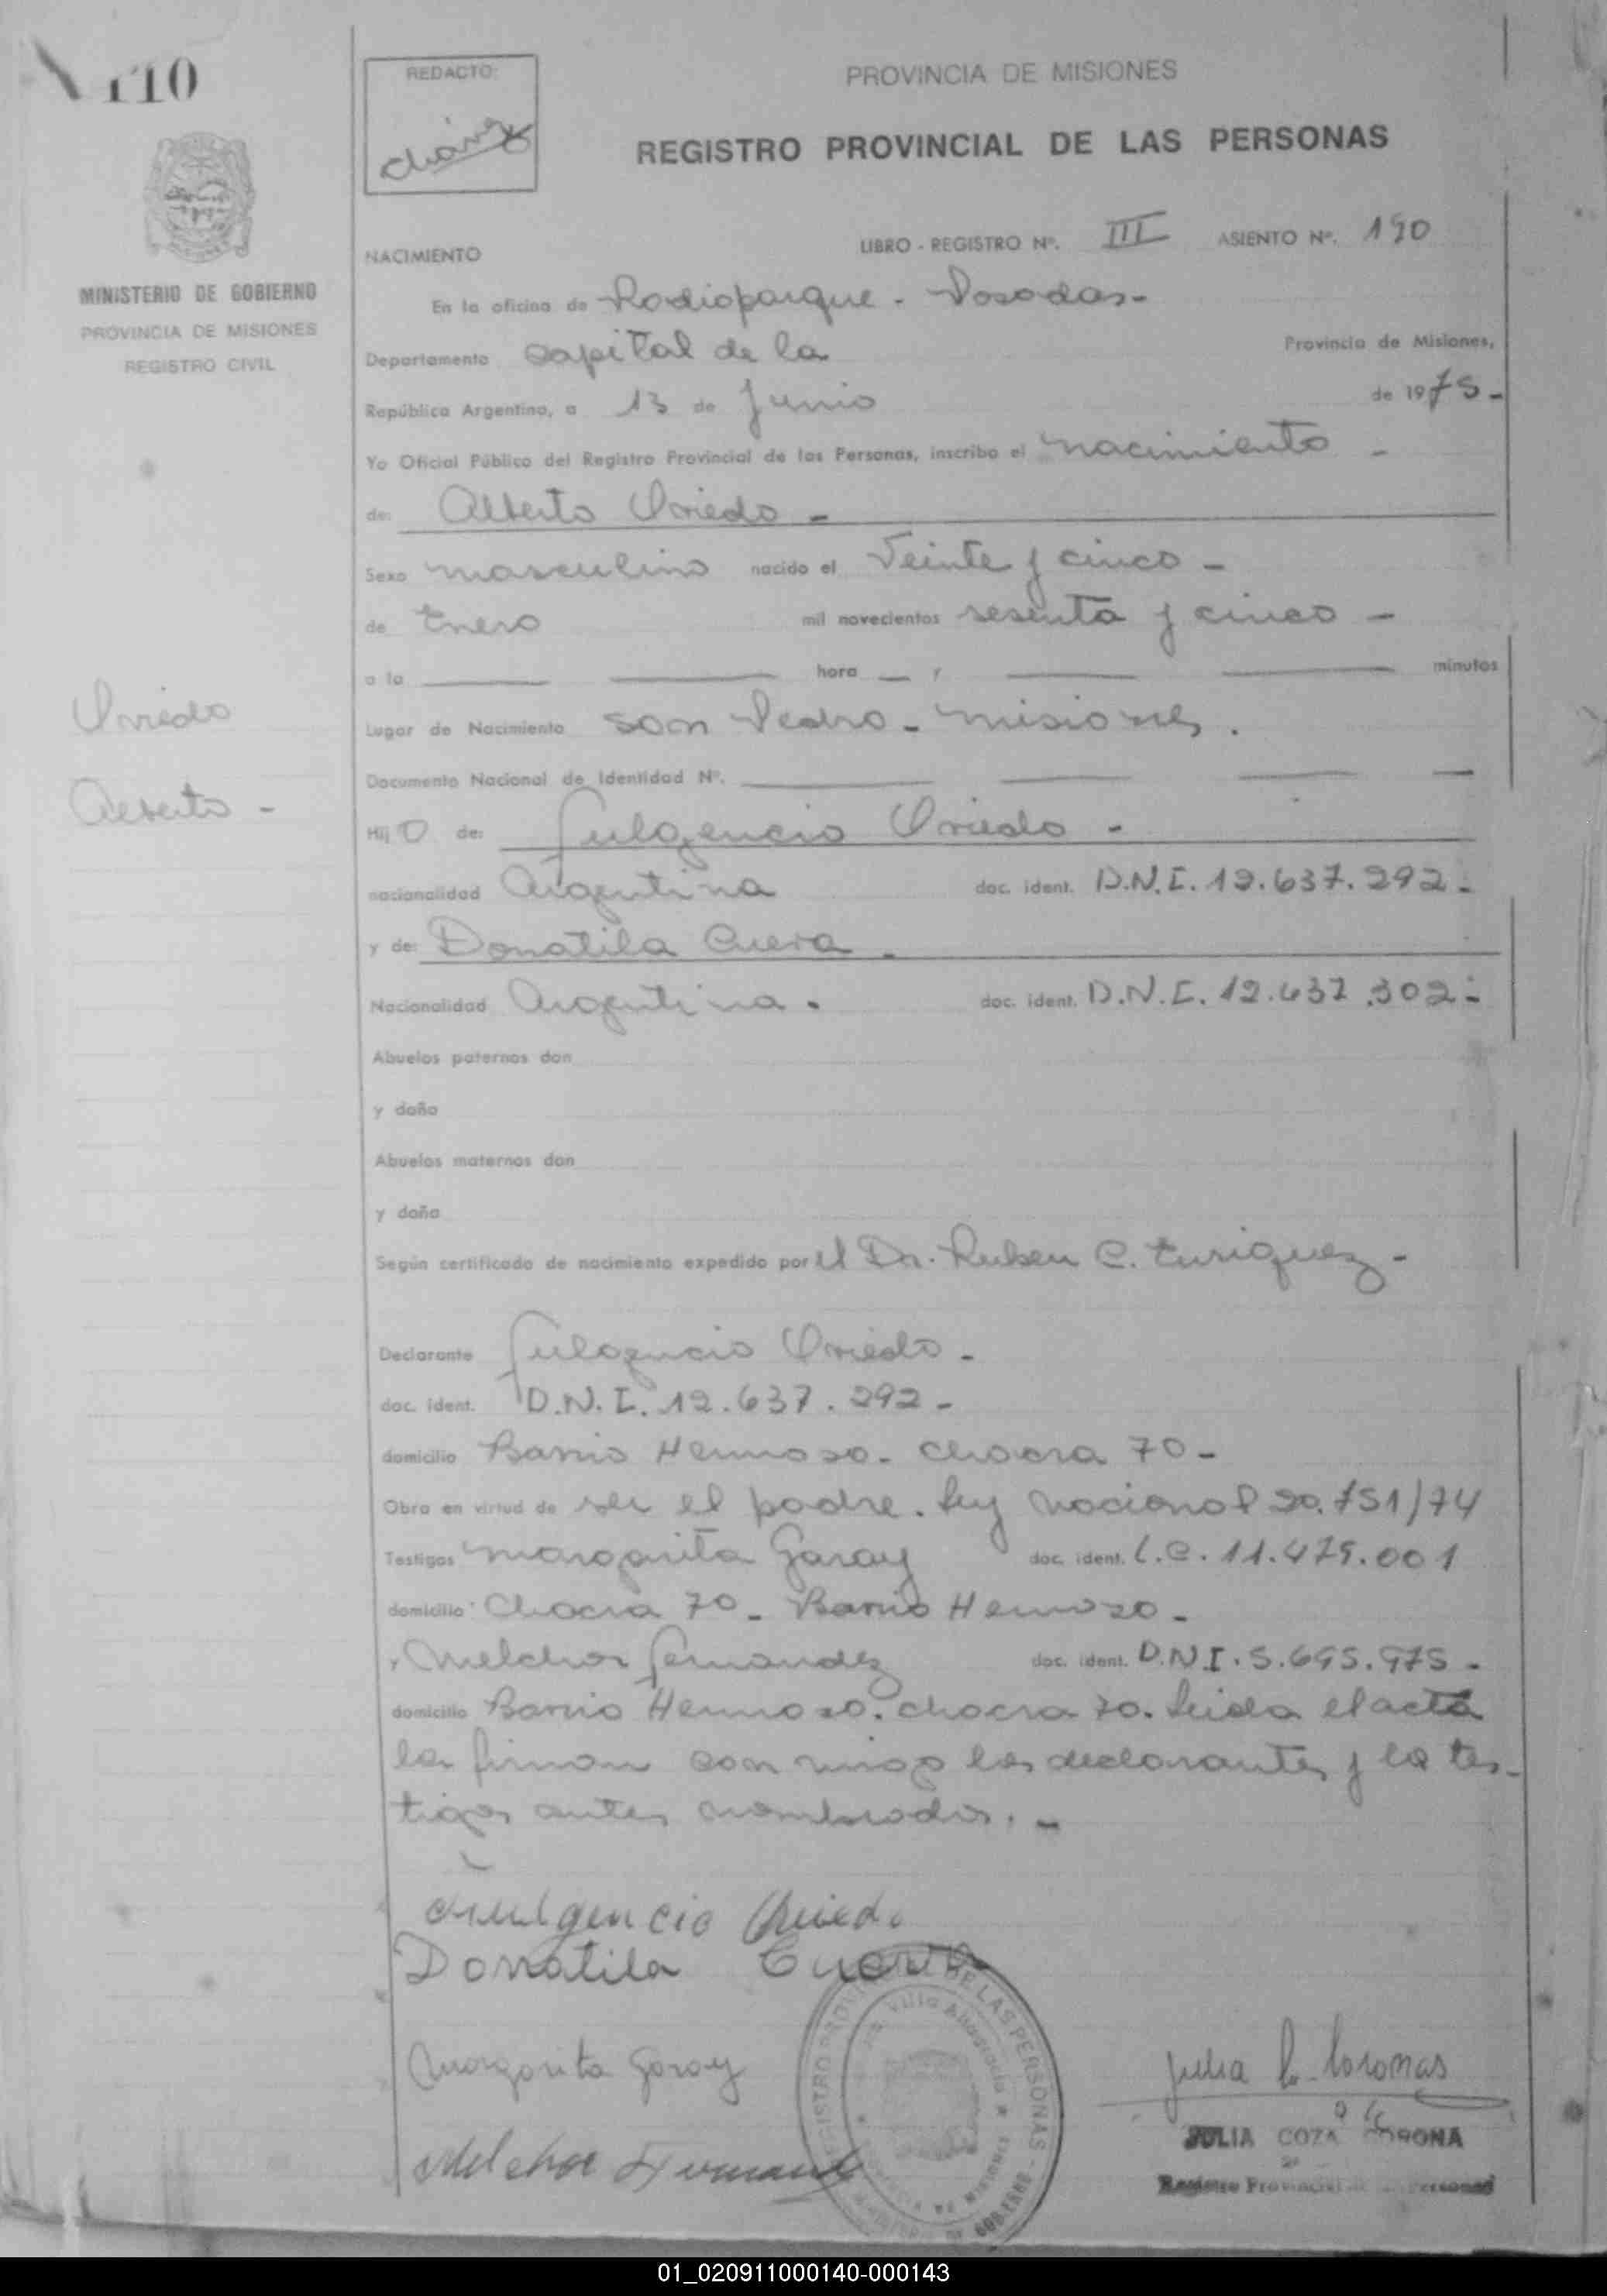 110
REDACTO:
PROVINCIA DE MISIONES
REGISTRO PROVINCIAL DE LAS PERSONAS
MINISTERIO DE GOBIERNO
PROVINCIA DE MISIONES
REGISTRO CIVIL
NACIMIENTO
LIBRO - REGISTRO Nº. III ASIENTO Nº. 190
En la oficina de Radioparque - Posadas -
Departamento Capital de la Provincia de Misiones,
República Argentina, a 13 de Junio de 1975 -
Yo Oficial Público del Registro Provincial de las Personas, inscribo el nacimiento -
de: Alberto Oviedo -
Sexo masculino nacido el Veinte y cinco -
de Enero mil novecientos sesenta y cinco -
a la hora y minutos
Oviedo
Alberto -
Lugar de Nacimiento San Pedro - Misiones.
Documento Nacional de Identidad Nº.
Hijo de: Fulgencio Oviedo -
nacionalidad Argentina doc. ident. D.N.I. 12.637.292 -
y de: Donatila Cuera -
Nacionalidad Argentina. doc. ident. D.N.I. 12.637.302 -
Abuelos paternos don
y doña
Abuelos maternos don
y doña
Según certificado de nacimiento expedido por el Dr. Ruben C. Enriquez -
Declarante Fulgencio Oviedo -
doc. ident. D.N.I. 12.637.292 -
domicilio Barrio Hermoso - Chacra 70 -
Obra en virtud de ser el padre. Ley Nacional 20.751/74
Testigos Margarita Garay doc. ident. L.C. 11.475.001
domicilio Chacra 70 - Barrio Hermoso -
y Melchor Fernandez doc. ident. D.N.I. 5.695.975 -
domicilio Barrio Hermoso. Chacra 70. Leida el acta
la firman con migo los declarantes y los tes-
tigos antes nombrados. -
Fulgencio Oviedo
Donatila Cuera
Margarita Garay
Melchor Fernandez
REGISTRO PROVINCIAL DE LAS PERSONAS
Julia C. Coronas
JULIA COZA CORONA
Registro Provincial de las Personas
01_020911000140-000143